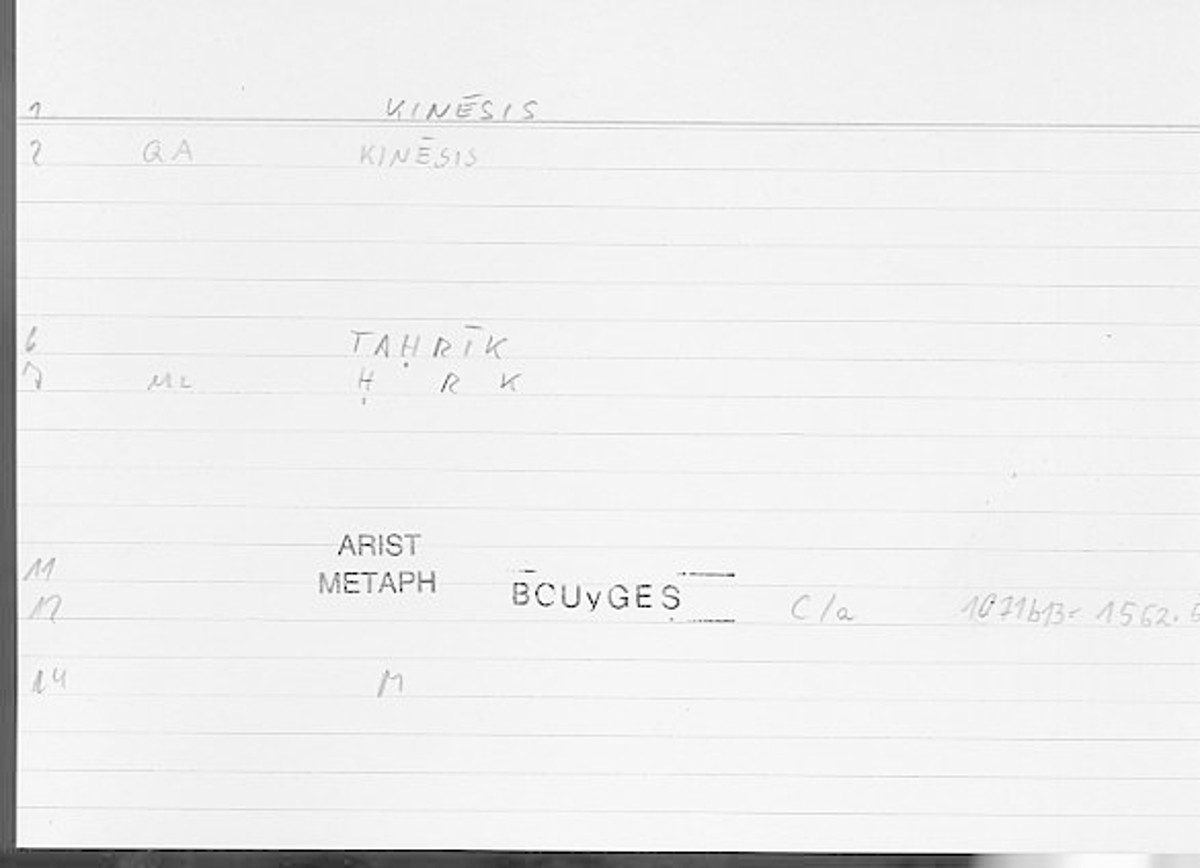 1 KINĒSIS
2 QA KINĒSIS
6 TAḤRĪK
7 ML Ḥ R K
ARIST
11 METAPH BCUyGES
12 C/a 1071b13= 1562.
14 M